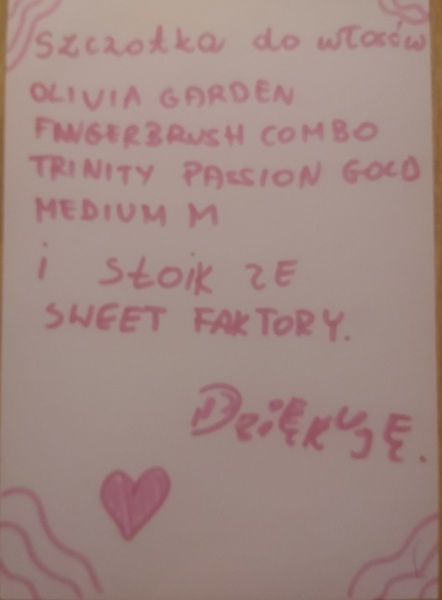 Szczotka do włosów
OLIVIA GARDEN
FINGERBRUSH COMBO
TRINITY PASSION GOLD
MEDIUM M
i SŁOIK ZE
SWEET FAKTORY.
DZIĘKUJĘ.